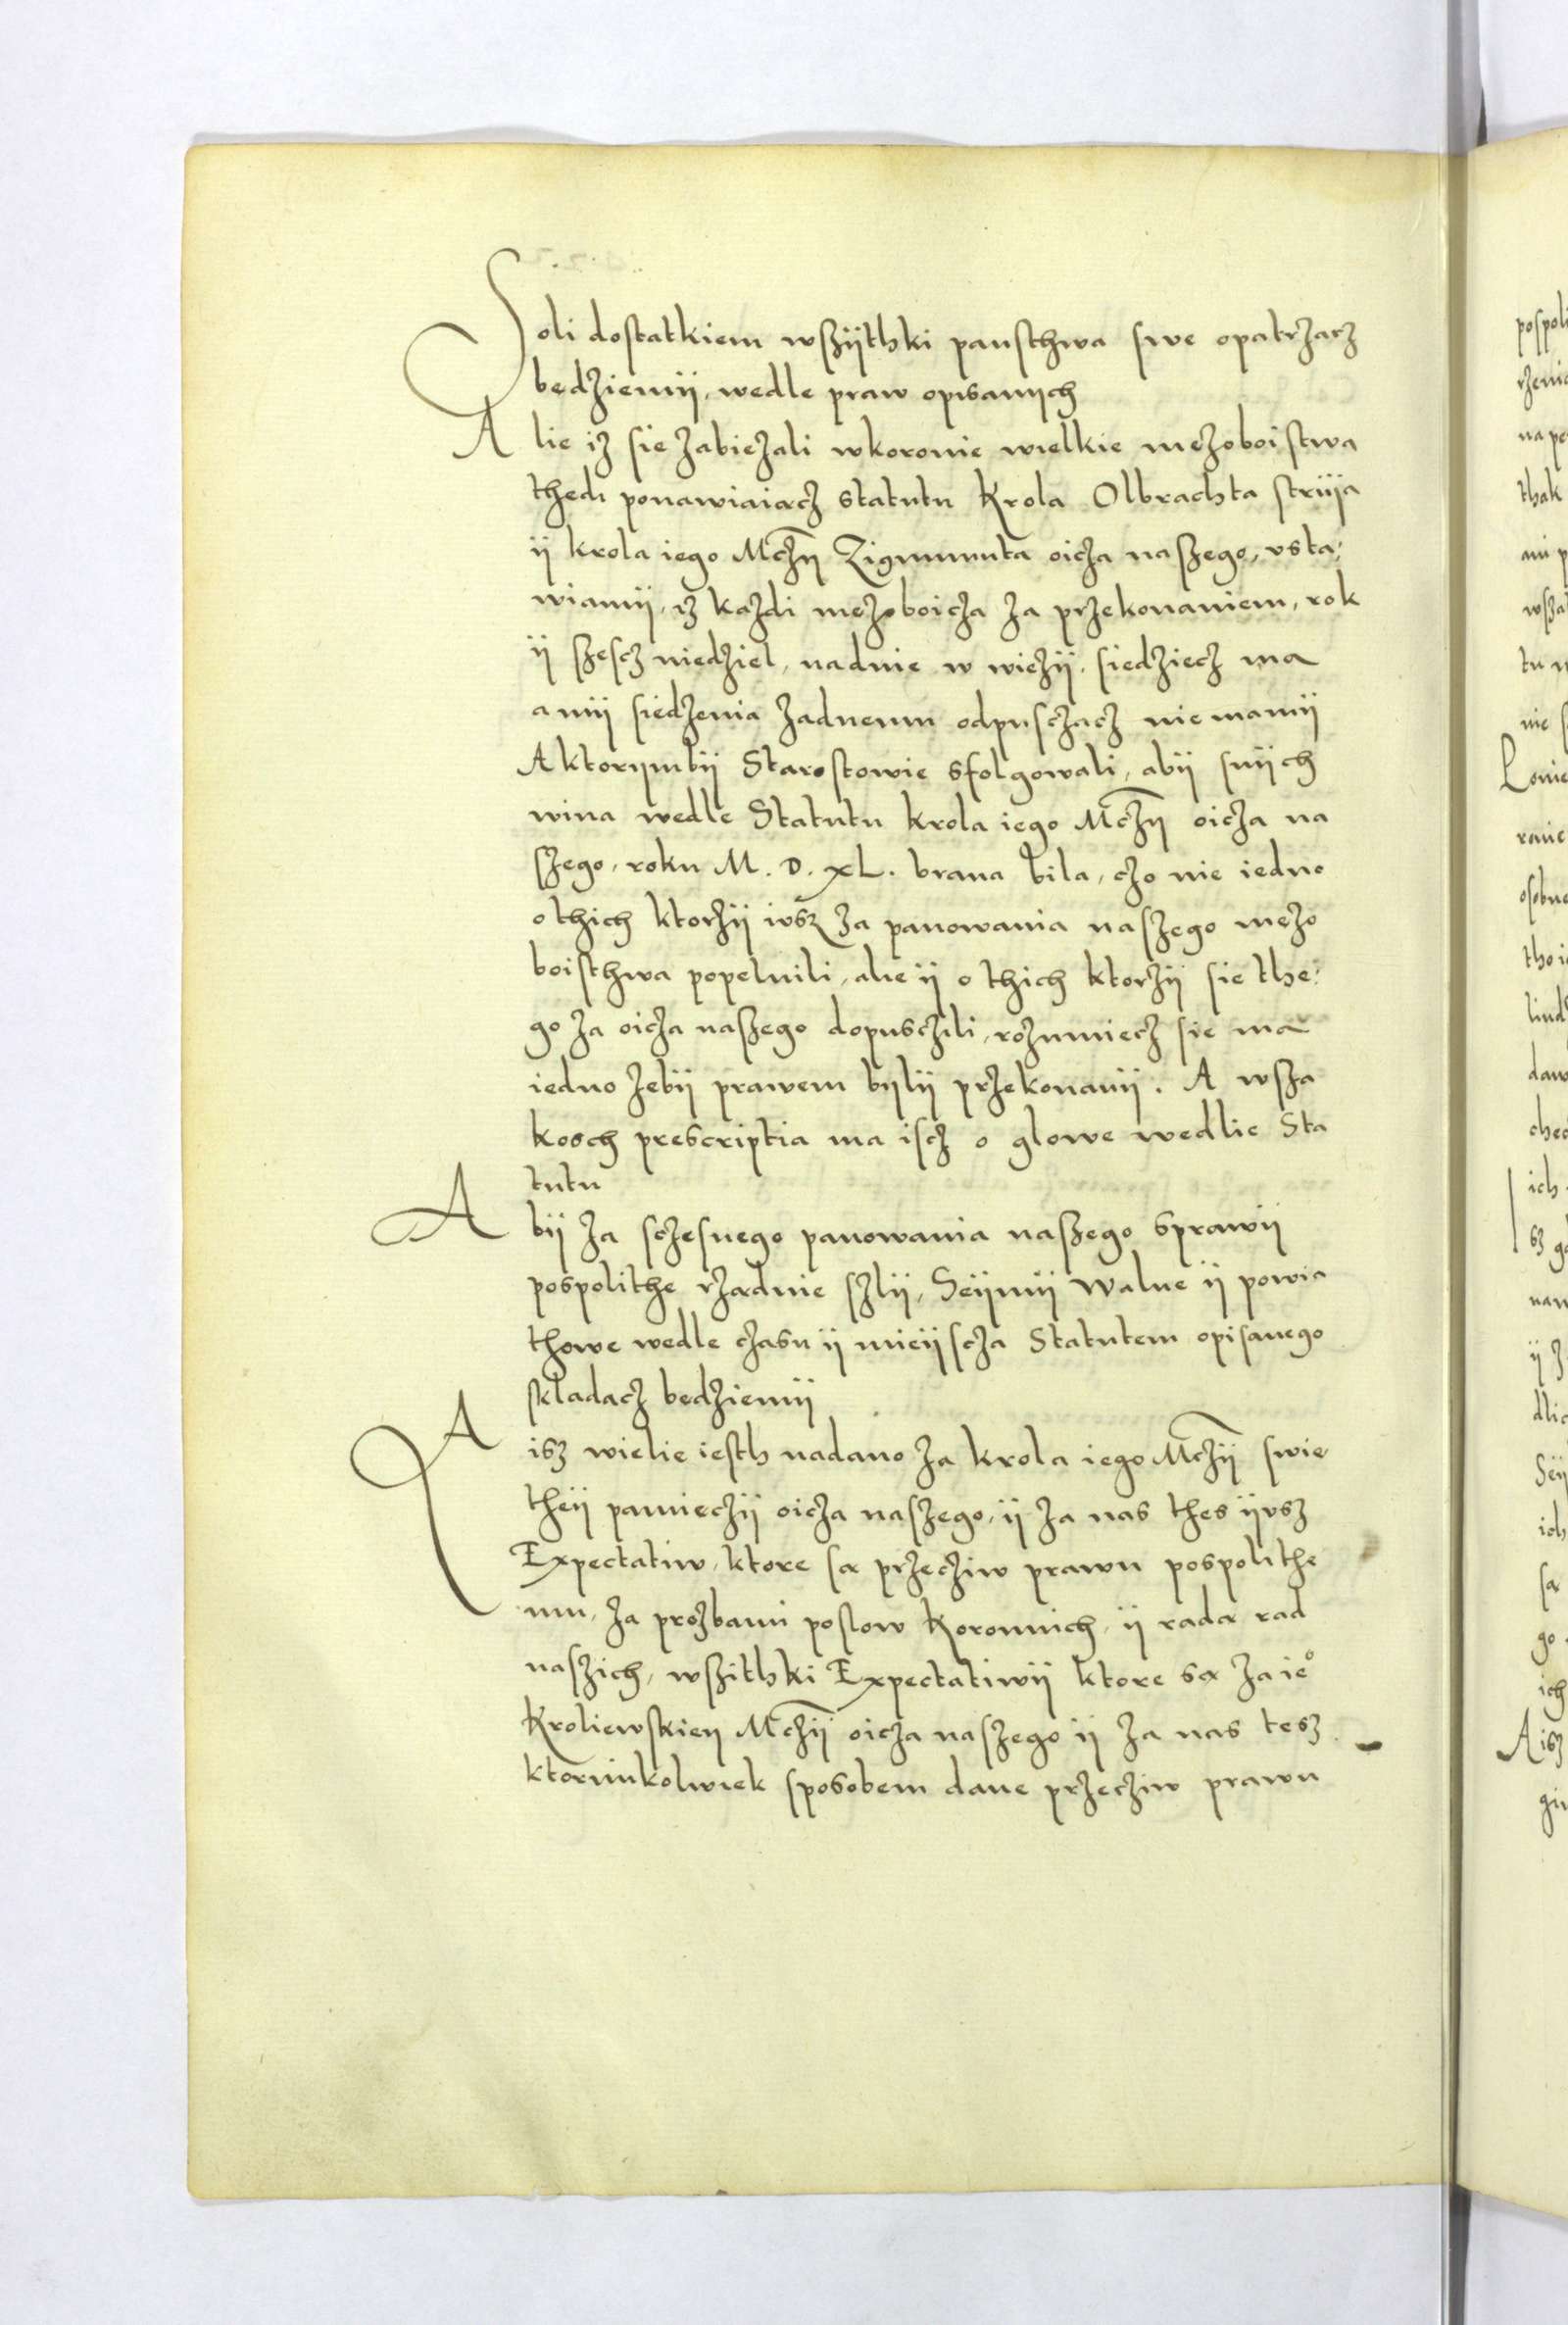 Soli dostatkiem wszÿthki pansthwa swe opatrzacz
będziemÿ, wedle praw opisanych
Alie iz sie zabiezali wkoronie wielkie mezoboistwa
thedi ponawiaiącz statutu Krola Olbrachta strÿia
ÿ krola iego Mczÿ Zigmunta oicza naszego, vsta:
wiamÿ, iz kazdi mezoboicza za przekonaniem, rok
ÿ szescz niedziel, nadnie w wiezÿ, siedziecz ma
amÿ siedzenia zadnemu odpusczacz nie mamÿ
A ktorymbÿ Starostowie sfolgowali, abÿ snÿich
wina wedle Statutu krola iego Mczÿ oicza na
szego, roku M. D. XL. brana bila, czo nie iedno
o thich ktorzÿ iusz za panowania naszego mezo
boisthwa popelnili, ale ÿ o thich ktorzÿ sie the:
go za oicza naszego dopusczili, rozumiecz sie ma
iedno zebÿ prawem bylÿ przekonanÿ. A wsza
kosch prescriptia ma iscz o glowe wedlie Sta
tutu
Abÿ za sczesnego panowania naszego sprawÿ
pospolithe rządnie szlÿ, Seÿmÿ walne ÿ powia
thowe wedle czasu ÿ mieÿscza Statutem opisanego
skladacz bedziemÿ
A isz wielie iesth nadano za krola iego Mczÿ swie
theÿ pamieczÿ oicza naszego, ÿ za nas thes ÿusz
Expectatiw, ktore są przecziw prawu pospolithe
mu, za prozbami poslow Koronnich, ÿ radą rad
naszich, wszithki Expectatiwÿ ktore są za ie°
Kroliewskieÿ Mczÿ oicza naszego ÿ za nas tesz
ktorimkolwiek sposobem dane przecziw prawu